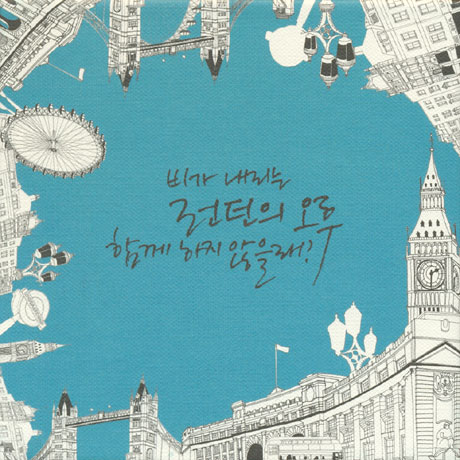 비가 내리는
런던의 오후
함께 하지 않을래?